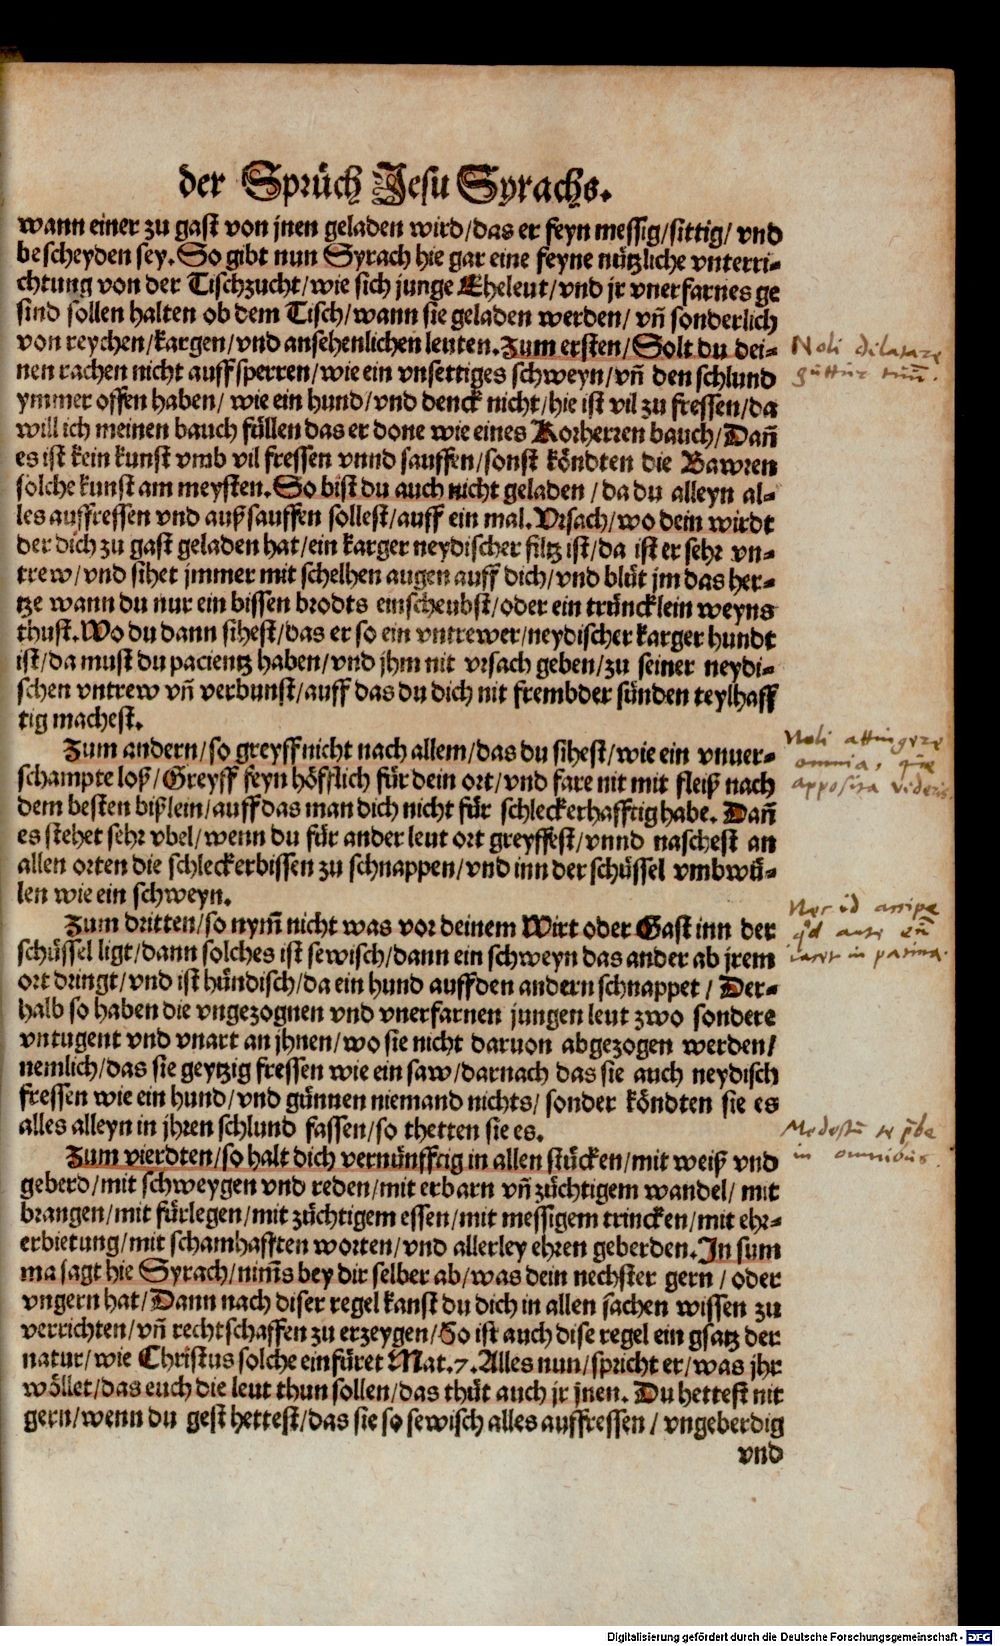 der Sprüch Jesu Syrachs.
wann einer zu gast von jnen geladen wird/das er feyn messig/sittig/ vnd
bescheyden sey. So gibt nun Syrach hie gar eine feyne nützliche vnterri-
chtung von der Tischzucht/wie sich junge Eheleut/vnd jr vnerfarnes ge
sind sollen halten ob dem Tisch/wann sie geladen werden/ vn̄ sonderlich
von reychen/kargen/vnd ansehenlichen leuten. Zum ersten/Solt du dei-
Noli dilatare
nen rachen nicht auffsperren/wie ein vnsettiges schweyn/vn̄ den schlund
guttur tuū.
ymmer offen haben/ wie ein hund/vnd denck nicht/hie ist vil zu fressen/da
will ich meinen bauch füllen das er done wie eines Korherren bauch/Dan̄
es ist kein kunst vmb vil fressen vnnd sauffen/sonst köndten die Bawren
solche kunst am meysten. So bist du auch nicht geladen / da du alleyn al-
les auffressen vnd außsauffen sollest/auff ein mal. Vrsach/wo dein wirdt
der dich zu gast geladen hat/ein karger neydischer filtz ist/da ist er sehr vn-
trew/vnd sihet jmmer mit schelhen augen auff dich/vnd blüt jm das her-
tze wann du nur ein bissen brodts einscheubst/oder ein trüncklein weyns
thust. Wo du dann sihest/das er so ein vntrewer/neydischer karger hundt
ist/da must du pacientz haben/vnd jhm nit vrsach geben/zu seiner neydi-
schen vntrew vn̄ verbunst/auff das du dich nit frembder sünden teylhaff
tig machest.
Zum andern/so greyff nicht nach allem/das du sihest/wie ein vnuer-
Noli attingere
schampte loß/Greyff feyn höfflich für dein ort/vnd fare nit mit fleiß nach
omnia, quæ
dem besten bißlein/auff das man dich nicht für schleckerhafftig habe. Dan̄
apposita videris.
es stehet sehr vbel/wenn du für ander leut ort greyffest/vnnd naschest an
allen orten die schleckerbissen zu schnappen/vnd inn der schüssel vmbwü-
len wie ein schweyn.
Zum dritten/so nym̄ nicht was vor deinem Wirt oder Gast inn der
Nec id arripe
qd ante eū
schüssel ligt/dann solches ist sewisch/dann ein schweyn das ander ab jrem
iacet in patina.
ort dringt/vnd ist hündisch/da ein hund auff den andern schnappet / Der-
halb so haben die vngezognen vnd vnerfarnen jungen leut zwo sondere
vntugent vnd vnart an jhnen/wo sie nicht daruon abgezogen werden/
nemlich/das sie geytzig fressen wie ein saw/darnach das sie auch neydisch
fressen wie ein hund/vnd günnen niemand nichts/ sonder köndten sie es
alles alleyn in jhren schlund fassen/so thetten sie es.
Modestū te p̄be
Zum vierdten/so halt dich vernünfftig in allen stücken/mit weiß vnd
in omnibus.
geberd/mit schweygen vnd reden/mit erbarn vn̄ züchtigem wandel/ mit
brangen/mit fürlegen/mit züchtigem essen/mit messigem trincken/mit ehr-
erbietung/mit schamhafften worten/vnd allerley ehren geberden. In sum
ma sagt hie Syrach/nim̄s bey dir selber ab/was dein nechster gern / oder
vngern hat/Dann nach diser regel kanst du dich in allen sachen wissen zu
verrichten/vn̄ rechtschaffen zu erzeygen/So ist auch dise regel ein gsatz der
natur/wie Christus solche einfüret Mat. 7. Alles nun/spricht er/was jhr
wöllet/das euch die leut thun sollen/das thüt auch jr jnen. Du hettest nit
gern/wenn du gest hettest/das sie so sewisch alles auffressen / vngeberdig
vnd
Digitalisierung gefördert durch die Deutsche Forschungsgemeinschaft - DFG